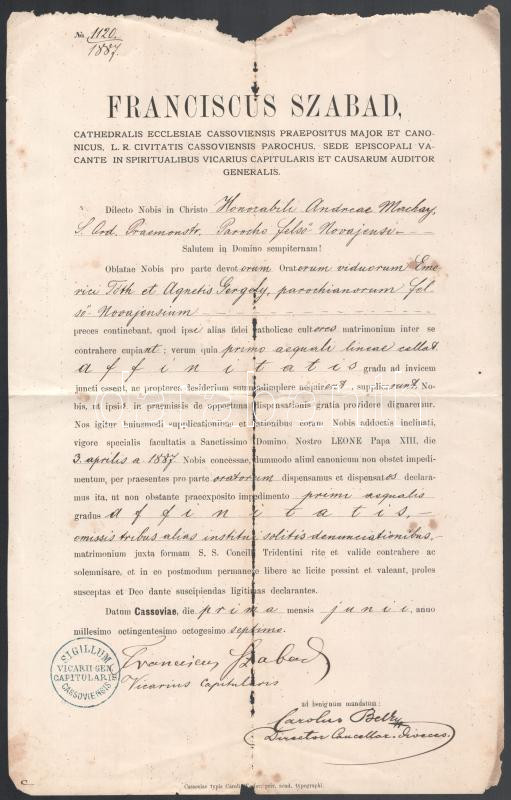 № 1120.
1887.
FRANCISCUS SZABAD,
CATHEDRALIS ECCLESIAE CASSOVIENSIS PRAEPOSITUS MAJOR ET CANO-
NICUS, L. R. CIVITATIS CASSOVIENSIS PAROCHUS, SEDE EPISCOPALI VA-
CANTE IN SPIRITUALIBUS VICARIUS CAPITULARIS ET CAUSARUM AUDITOR
GENERALIS.
Dilecto Nobis in Christo Honorabili Andreae Machay,
S. Ord. Praemonstr. Parocho felső Novajensi
Salutem in Domino sempiternam!
Oblatae Nobis pro parte devotorum Oratorum viduorum Eme-
rici Tóth et Agnetis Gergely, parochianorum fel-
ső-Novajensium
preces continebant, quod ipsae alias fidei catholicae cultores matrimonium inter se
contrahere cupiant; verum quia primo aequali lineae collat
affinitatis gradu ad invicem
juncti essent, ac propterea desiderium suum adimplere nequirent, supplicarunt No-
bis, ut ipsis in praemissis de opportuna dispensationis gratia providere dignaremur.
Nos igitur hujusmodi supplicationibus et rationibus coram Nobis adductis inclinati,
vigore specialis facultatis a Sanctissimo Domino Nostro LEONE Papa XIII, die
3. aprilis a 1887. Nobis concessae, dummodo aliud canonicum non obstet impedi-
mentum, per praesentes pro parte oratorum dispensamus et dispensatos declara-
mus ita, ut non obstante praeexposito impedimento primi aequalis
gradus affinitatis,
omissis tribus alias institui solitis denunciationibus,
matrimonium juxta formam S. S. Concilii Tridentini rite et valide contrahere ac
solemnisare, et in eo postmodum permanere libere ac licite possint et valeant, proles
susceptas et Deo dante suscipiendas ligitimas declarantes.
Datum Cassoviae, die prima mensis junii, anno
millesimo octingentesimo octogesimo septimo.
Franciscus Szabad
Vicarius Capitularis
SIGILLUM
VICARII GEN.
CAPITULARIS
CASSOVIENSIS
ad benignum mandatum:
Carolus
Director Cancellar. dioeces.
Cassoviae typis Caroli typographi.